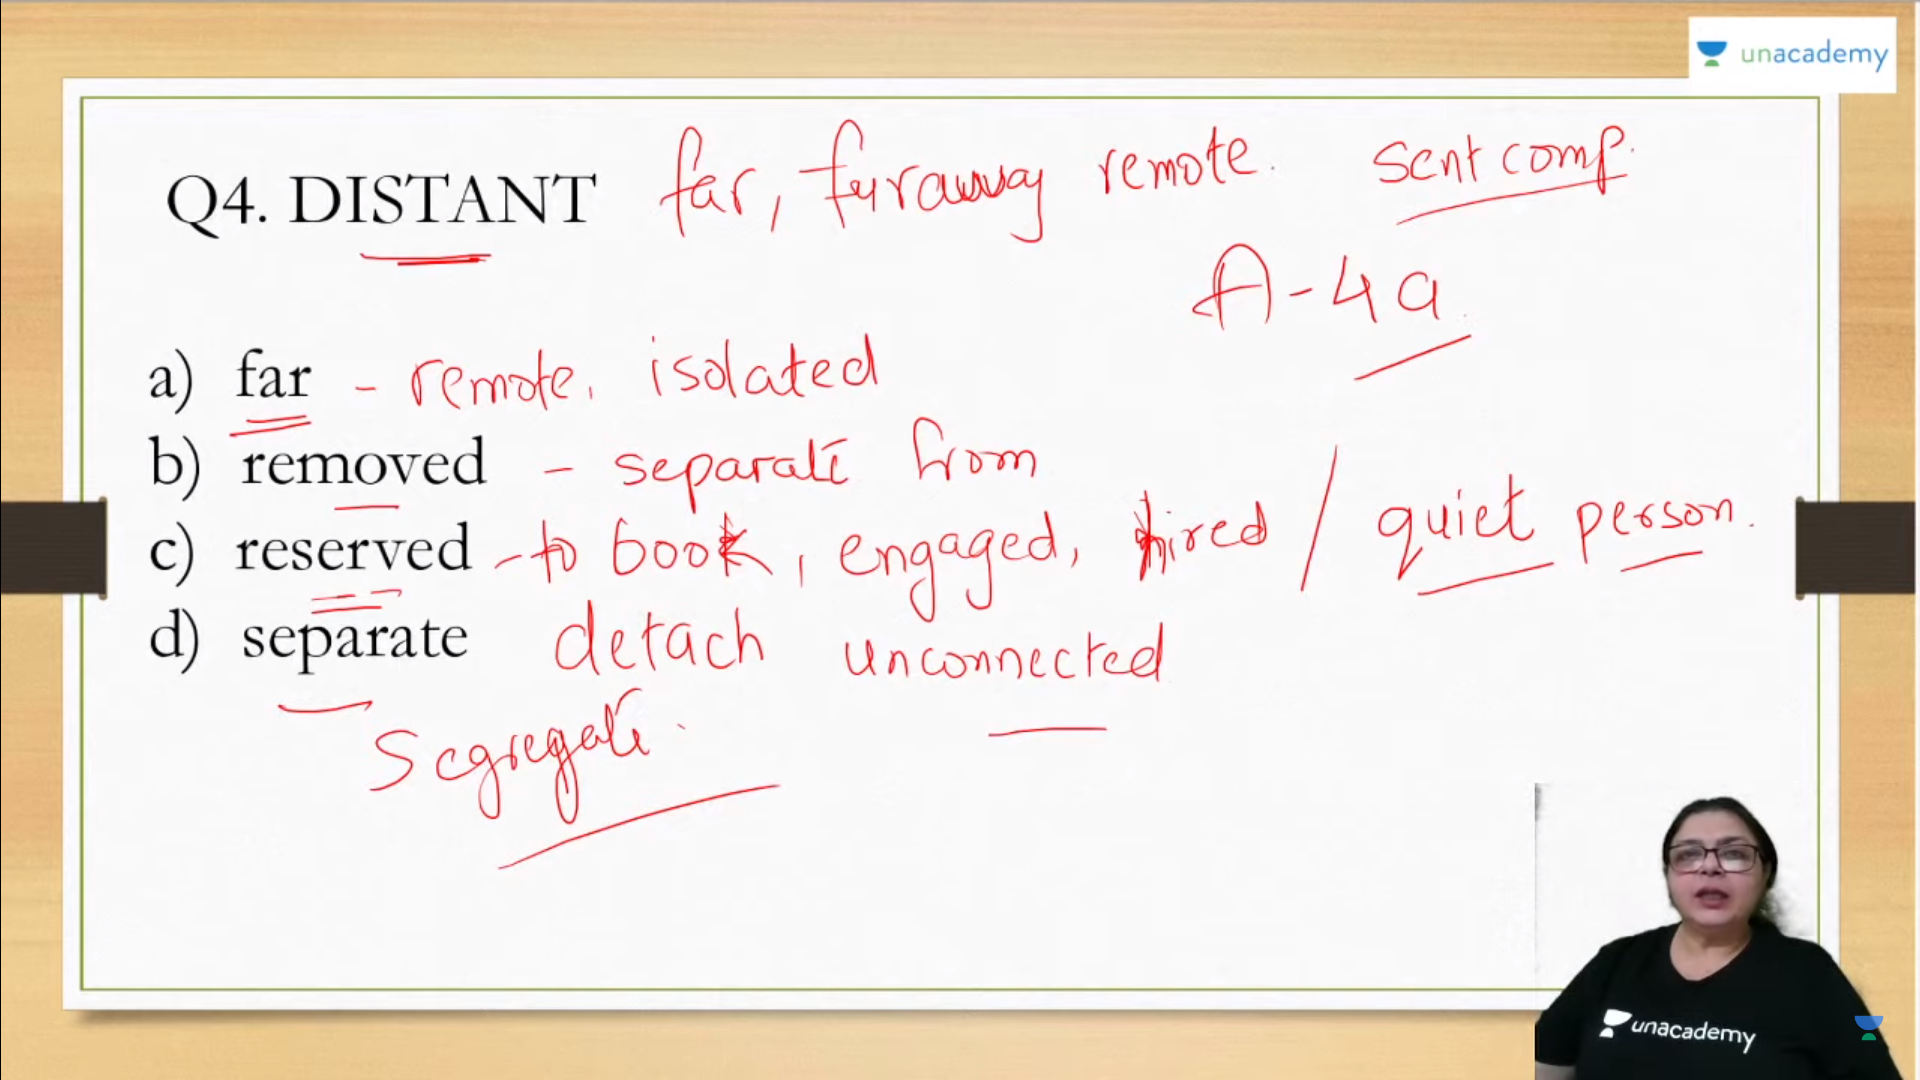 unacademy
Q4. DISTANT far, faraway remote. Sent comp.
A - 4 a
a) far - remote, isolated
b) removed - separate from
c) reserved - to book, engaged, hired / quiet person.
d) separate detach unconnected
Segregate.
unacademy